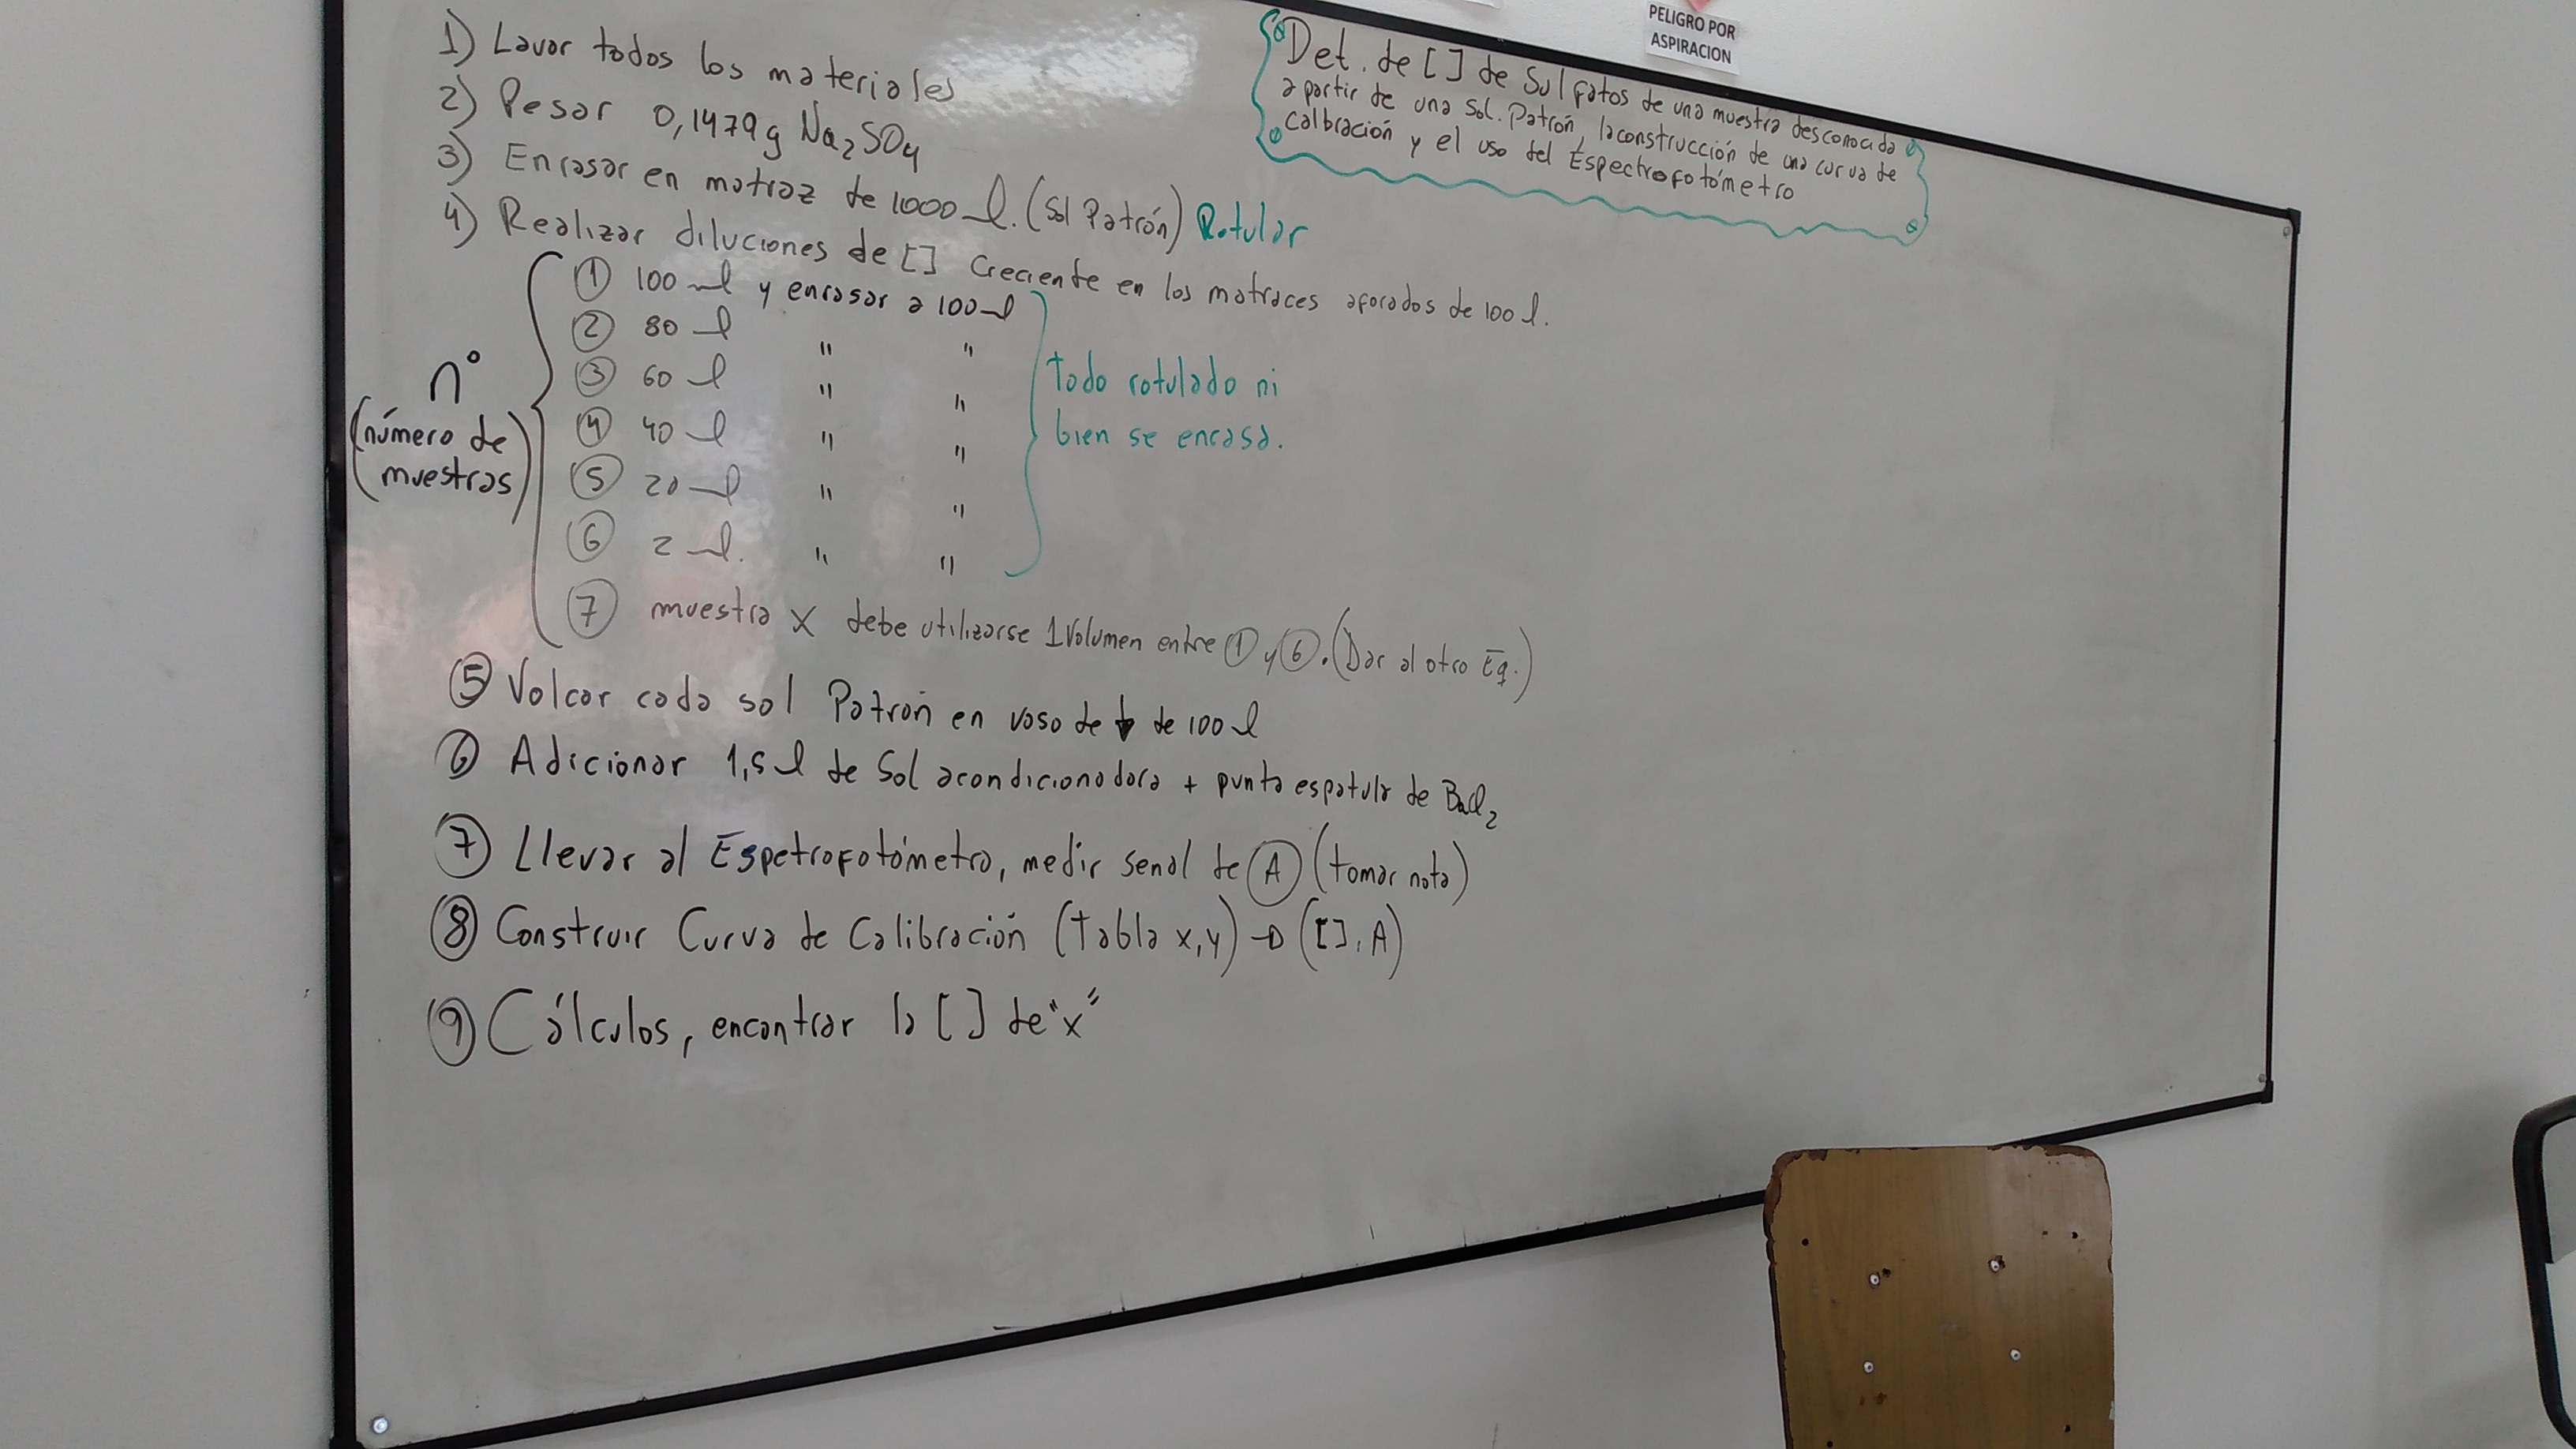 PELIGRO POR
ASPIRACION
Det. de [ ] de Sulfatos de una muestra desconocida
a partir de una Sol. Patrón, la construcción de una curva de
calbración y el uso del Espectrofotómetro
1) Lavar todos los materiales
2) Pesar 0,1479g Na2SO4
3) Enrasar en matraz de 1000 ml. (Sol Patrón) Rotular
4) Realizar diluciones de [ ] Creciente en los matraces aforados de 100 ml.
① 100 ml y enrasar a 100 ml
② 80 ml " "
③ 60 ml " "
④ 40 ml " "
⑤ 20 ml " "
⑥ 2 ml. " "
n°
(número de
muestras)
Todo rotulado ni
bien se enrasa.
⑦ muestra X debe utilizarse 1 Volumen entre ① y ⑥. (Dar al otro Eq.)
⑤ Volcar cada sol Patrón en vaso de de 100 ml
⑥ Adicionar 1,5 ml de Sol acondicionadora + punta espatula de BaCl2
⑦ Llevar al Espetrofotómetro, medir senal de Ⓐ (tomar nota)
⑧ Construir Curva de Calibración (Tabla x,y) → ([ ], A)
⑨ Cálculos, encontrar la [ ] de "x"